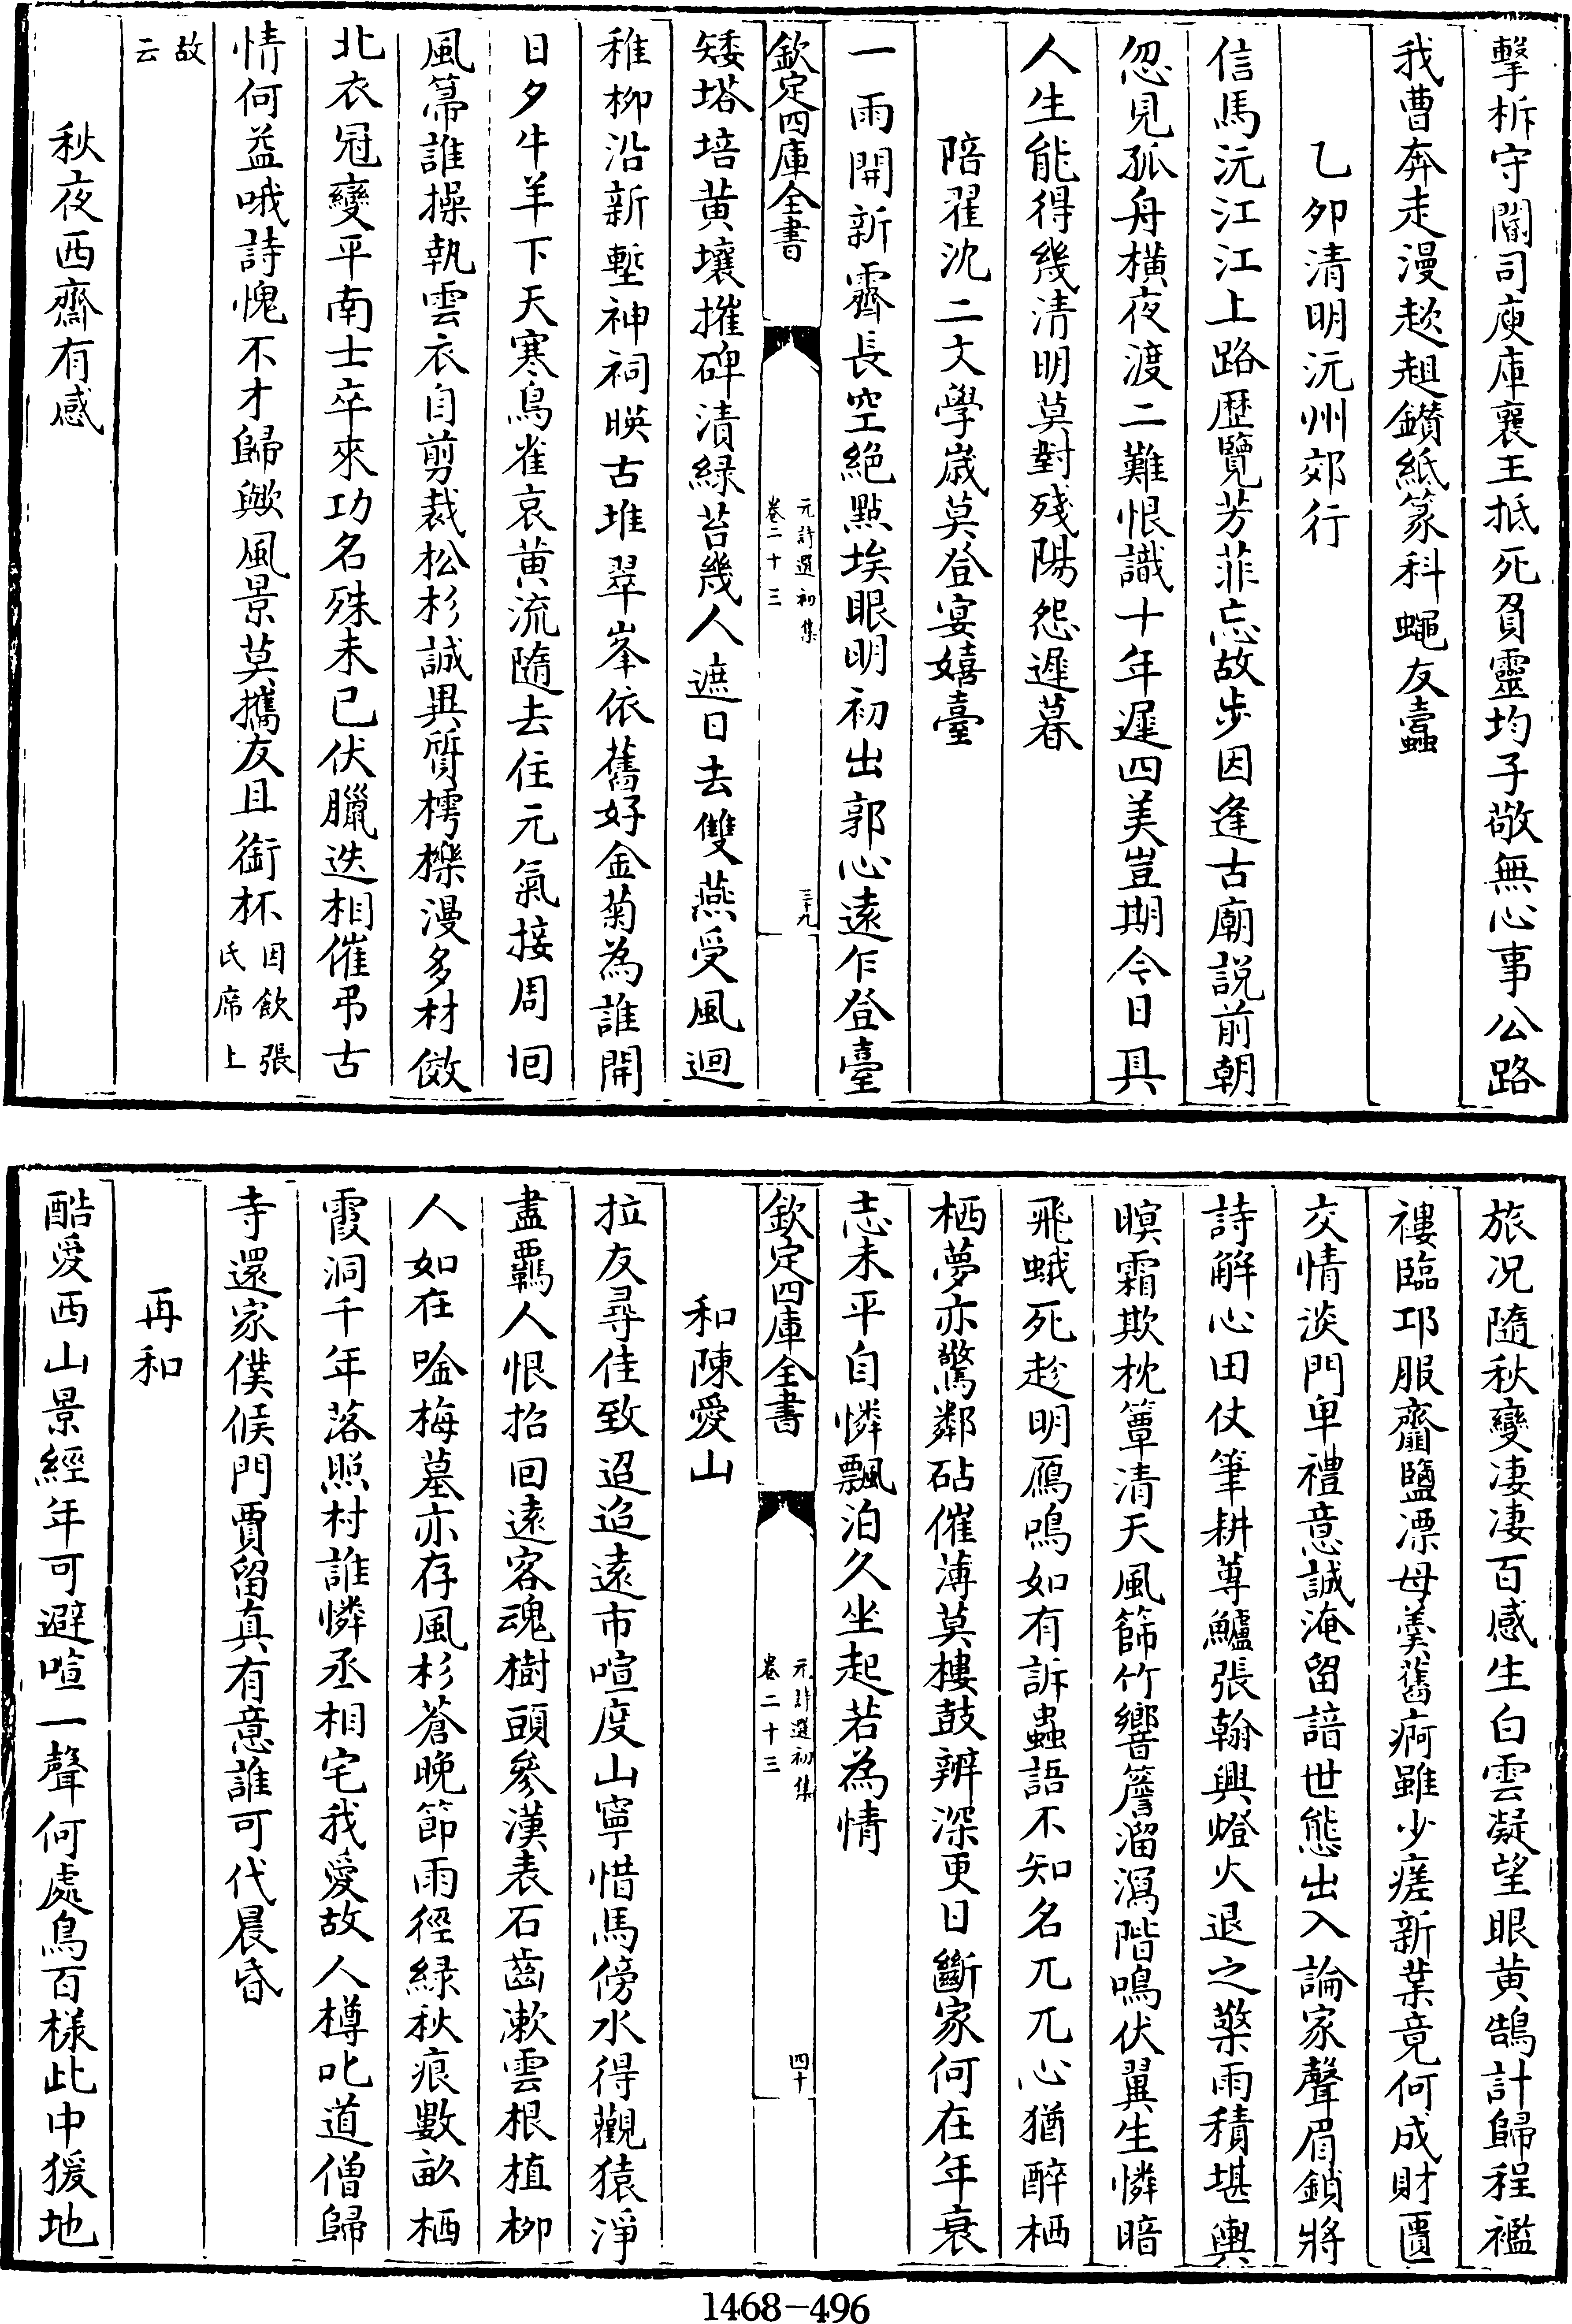 擊柝守閽司庾庫襄王抵死負靈均子敬無心事公路
我曹奔走漫趑趄鑚紙篆科蠅友蠧
乙夘清明沅州郊行
信馬沅江江上路歴覽芳菲忘故步因逢古廟説前朝
忽見孤舟横夜渡二難恨識十年遲四美豈期今日具
人生能得幾清明莫對殘陽怨遲暮
陪翟沈二文學嵗莫登宴嬉臺
一雨開新霽長空絶點埃眼明初出郭心遠乍登臺
欽定四庫全書
元詩選初集
卷二十三
三十九
矮塔培黄壤摧碑漬緑苔幾人遮日去雙燕受風迴
稚栁沿新塹神祠暎古堆翠峯依舊好金菊為誰開
日夕牛羊下天寒鳥雀哀黄流隨去住元氣接周回
風箒誰操執雲衣自剪裁松杉誠異質樗櫟漫多材傚
北衣冠變平南士卒來功名殊未已伏臘迭相催弔古
情何益哦詩愧不才歸歟風景莫攜友且銜杯因飲張氏席上
故云
秋夜西齋有感
旅况隨秋變凄凄百感生白雲凝望眼黄鵠計歸程襤
褸臨邛服齏鹽漂母羮舊痾雖少瘥新業竟何成財匱
交情淡門卑禮意誠淹留諳世態出入論家聲眉鎖將
詩解心田仗筆耕蓴鱸張翰興燈火退之檠雨積堪輿
暝霜欺枕簟清天風篩竹響簷溜瀉階鳴伏翼生憐暗
飛蛾死趁明鴈鳴如有訴蟲語不知名兀兀心猶醉栖
栖夢亦驚鄰砧催薄莫樓鼓辨深更日斷家何在年衰
志未平自憐飄泊久坐起若為情
欽定四庫全書
元詩選初集
卷二十三
四十
和陳愛山
拉友尋佳致迢迢遠市喧度山寧惜馬傍水得觀猿淨
盡覊人恨招回遠客魂樹頭參漢表石齒漱雲根植栁
人如在唫梅墓亦存風杉蒼晚節雨徑緑秋痕數畝栖
霞洞千年落照村誰憐丞相宅我愛故人樽叱道僧歸
寺還家僕候門賈留真有意誰可代晨昏
再和
酷愛西山景經年可避喧一聲何處鳥百樣此中猨地
1468-496